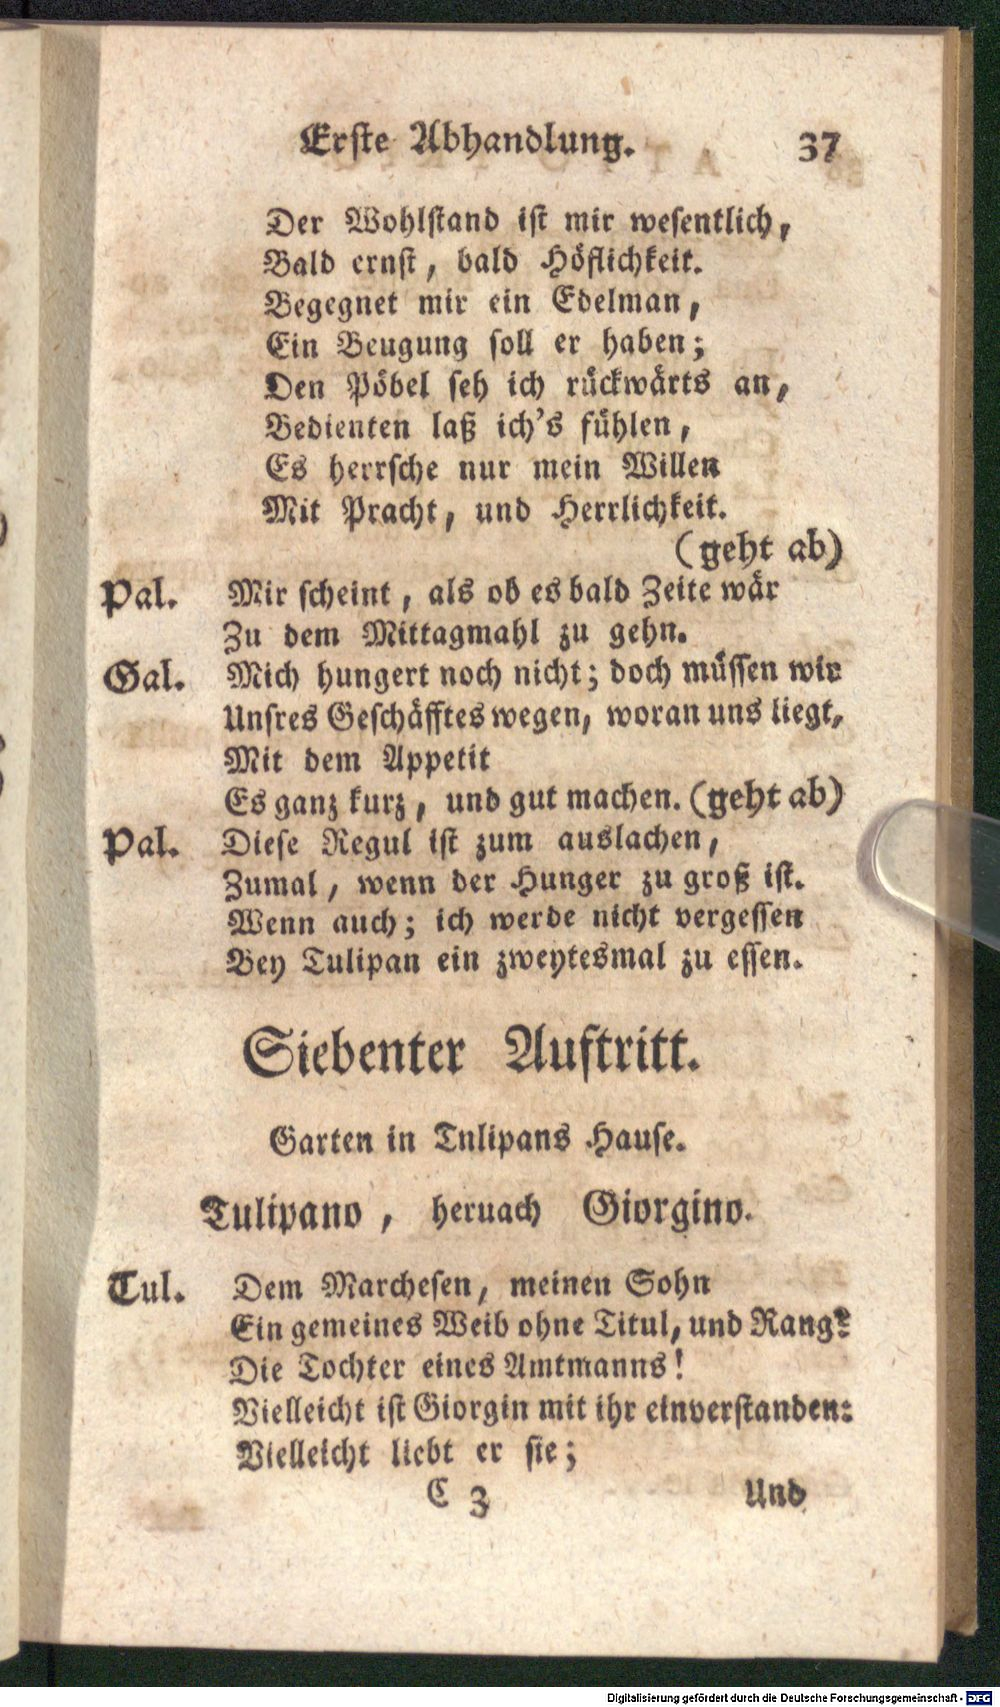 Erste Abhandlung. 37
Der Wohlstand ist mir wesentlich,
Bald ernst, bald Höflichkeit.
Begegnet mir ein Edelman,
Ein Beugung soll er haben;
Den Pöbel seh ich rückwärts an,
Bedienten laß ich's fühlen,
Es herrsche nur mein Willen
Mit Pracht, und Herrlichkeit.
(geht ab)
Pal. Mir scheint, als ob es bald Zeite wär
Zu dem Mittagmahl zu gehn.
Gal. Mich hungert noch nicht; doch müssen wir
Unsres Geschäfftes wegen, woran uns liegt,
Mit dem Appetit
Es ganz kurz, und gut machen. (geht ab)
Pal. Diese Regul ist zum auslachen,
Zumal, wenn der Hunger zu groß ist.
Wenn auch; ich werde nicht vergessen
Bey Tulipan ein zweytesmal zu essen.
Siebenter Auftritt.
Garten in Tnlipans Hause.
Tulipano, heruach Giorgino.
Tul. Dem Marchesen, meinen Sohn
Ein gemeines Weib ohne Titul, und Rang?
Die Tochter eines Amtmanns!
Vielleicht ist Giorgin mit ihr einverstanden:
Vielleicht liebt er sie;
C 3 Und
Digitalisierung gefördert durch die Deutsche Forschungsgemeinschaft - DFG